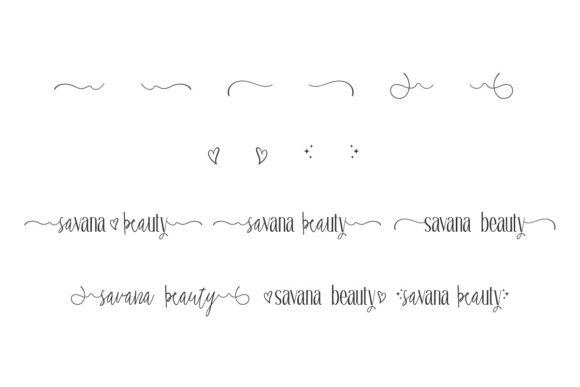 savana beauty savana beauty savana beauty
savana beauty savana beauty savana beauty